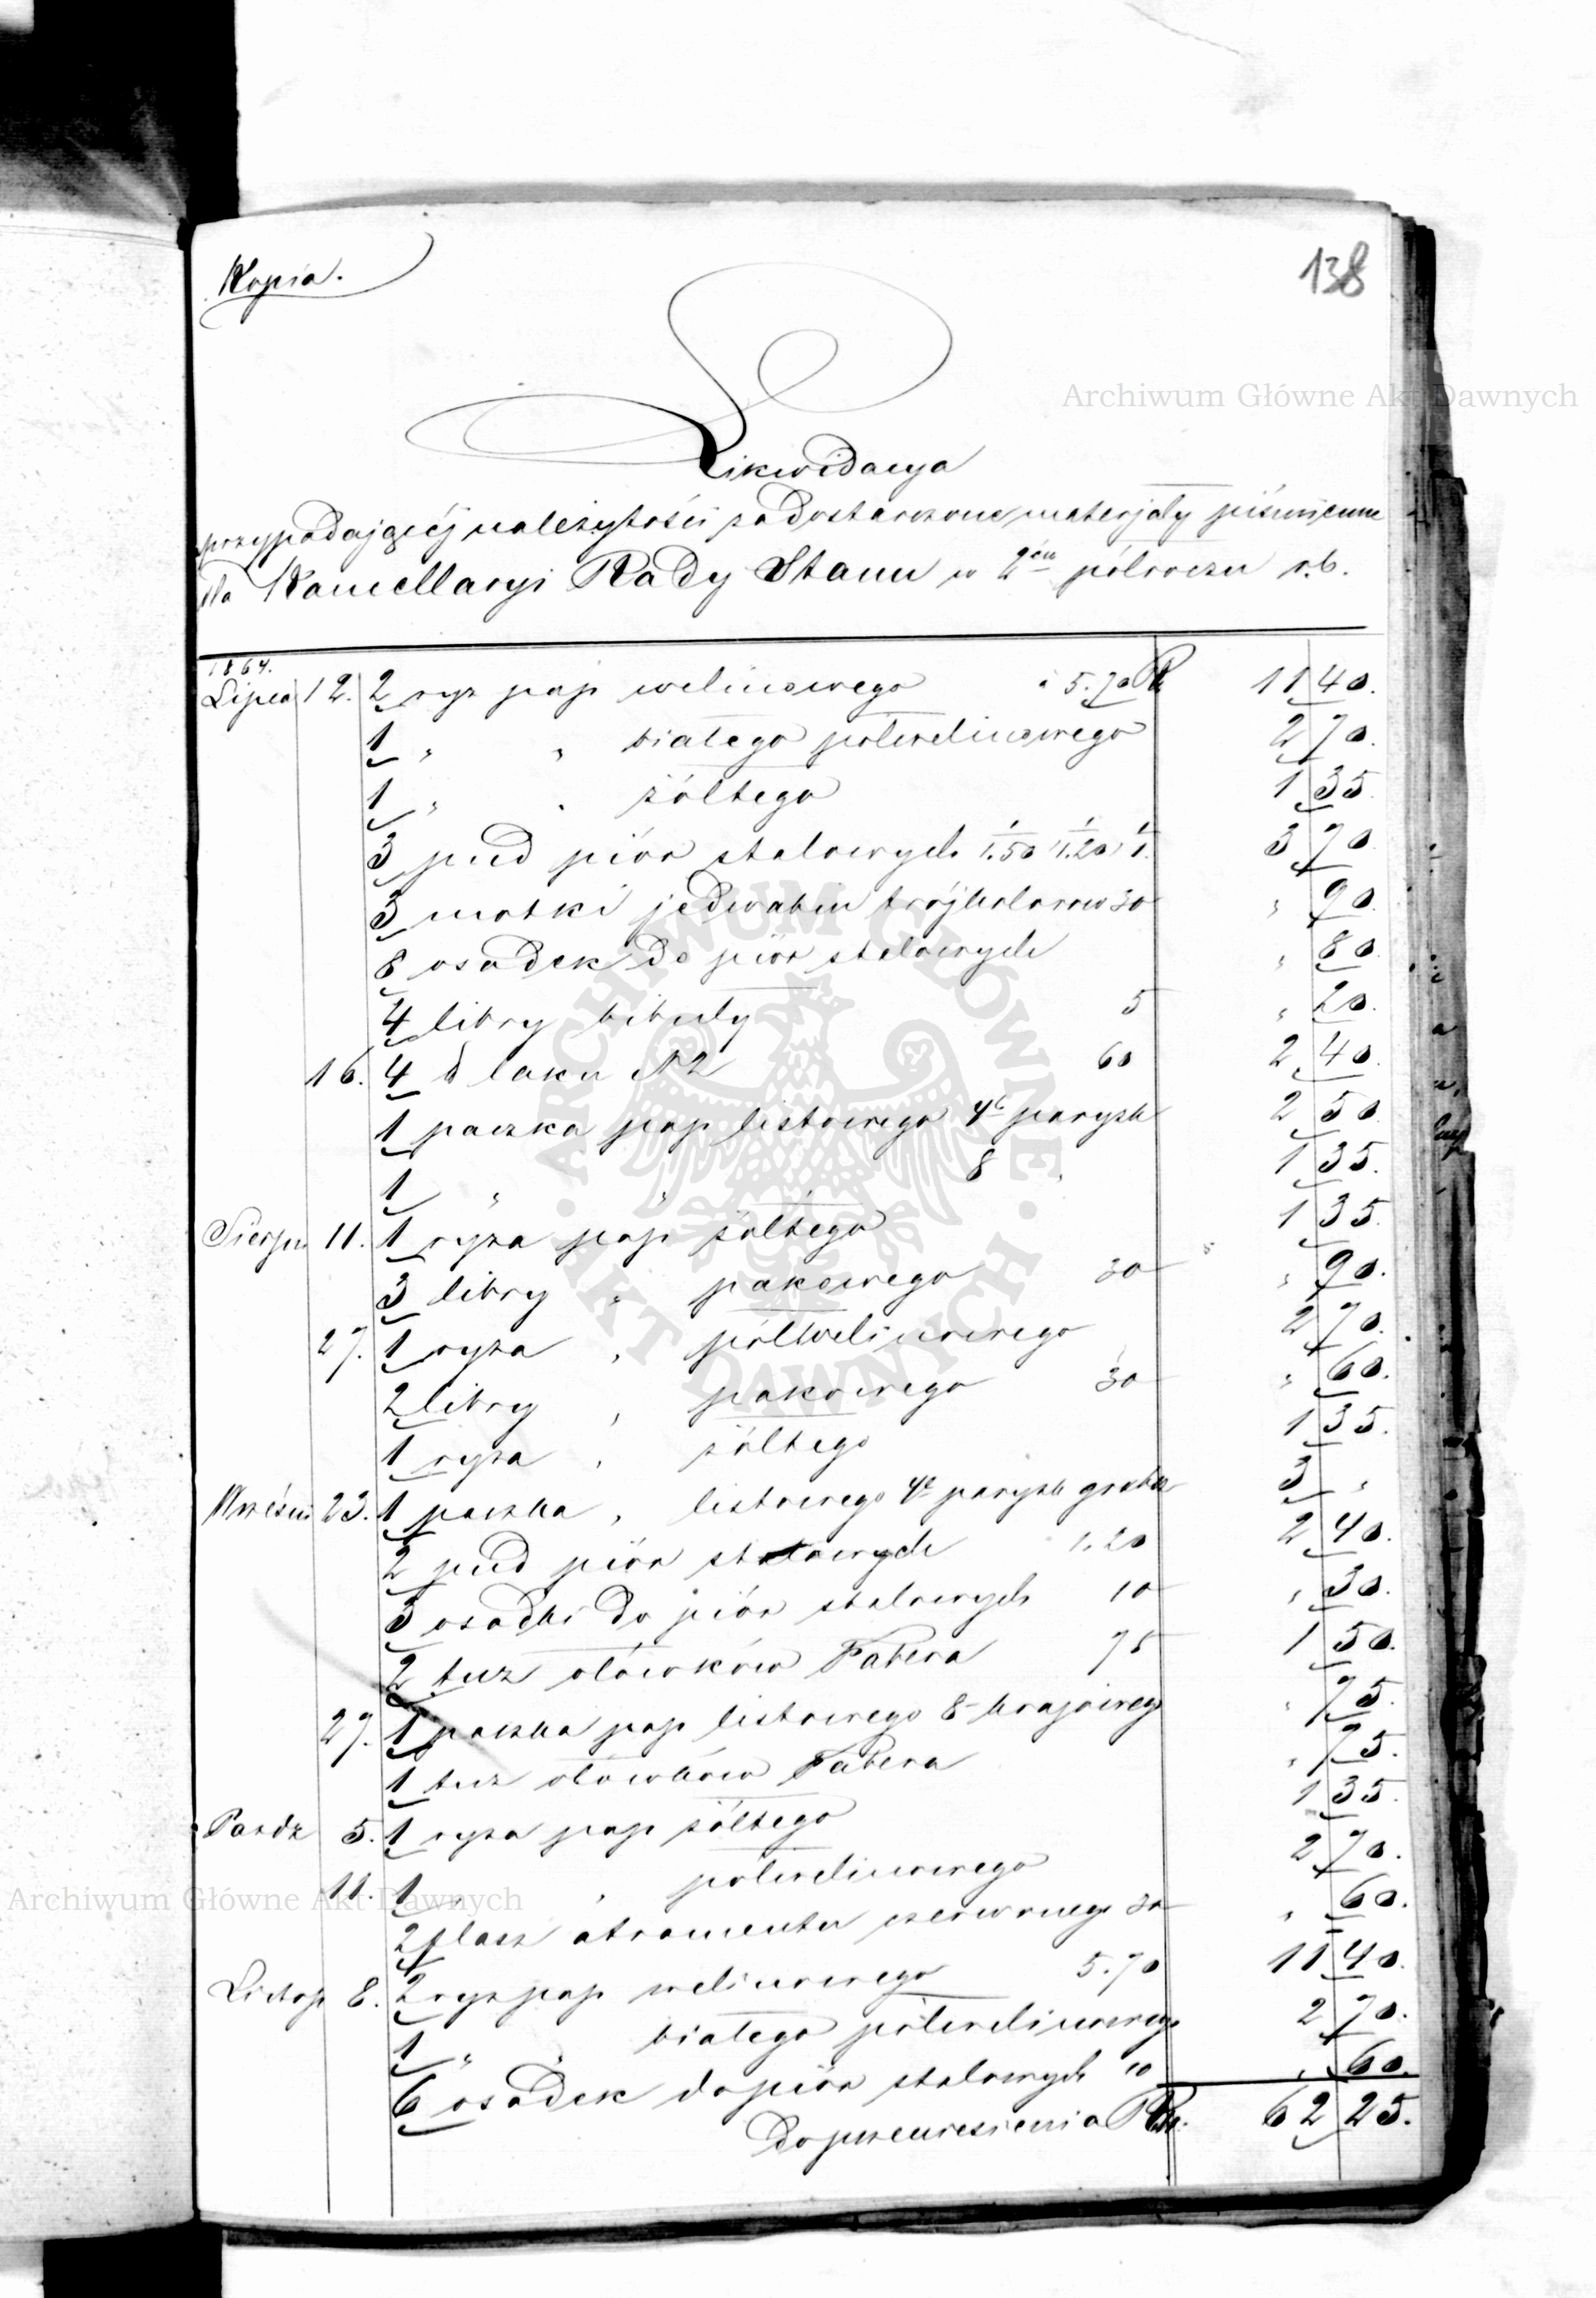 Kopia.
138
Archiwum Główne Akt Dawnych
Likwidacya
przypadającéj należytości za dostarczone materjały piśmienne
dla Kancellaryi Rady Stanu w 2em półroczu r.b.
1864.
Lipca 12. 2 ryz pap welinowego a 5.70 R 11 40.
1 " " białego półwelinowego 2 70.
1 " " żółtego 1 35.
3 pud piór stalowych 1/1.50 1/1.20 1/1. 3 70
3 motki jedwabiu trójkolorow 30 " 90.
8 osadek do piór stalowych " 80.
4 libry bibuły 5 " 20.
16. 4 ℔ laku N2 60 2 40.
1 paczka pap listowego 4o parysk 2 50
1 " " 8 " 1 35.
Sierpn 11. 1 ryza pap żółtego 1 35.
3 libry " pakowego 30 " 90.
27. 1 ryza " półwelinowego 2 70.
2 libry " pakowego 30 " 60.
1 ryza " żółtego 1 35.
Wrześni 23. 1 paczka " listowego 4o parysk 3 "
2 pud piór stalowych 1.20 2 40.
3 osadki do piór stalowych 10 " 30.
2 tuz ołówków Fabera 75 1 50.
27. 1 paczka pap listowego 8- krajoweg " 75.
1 tuz ołówków Fabera " 75.
Pazdz 5. 1 ryza pap żółtego 1 35.
11. 1 " " półwelinowego 2 70.
Archiwum Główne Akt Dawnych
2 flasz atramentu czerwonego 30 " 60.
Listop 8. 2 ryz pap welinowego 5.70 11 40.
1 " " białego półwelinowego 2 70.
6 osadek do piór stalowych 10 " 60.
Do przeniesienia Rs. 62 25.
ARCHIWUM GŁÓWNE · AKT DAWNYCH ·